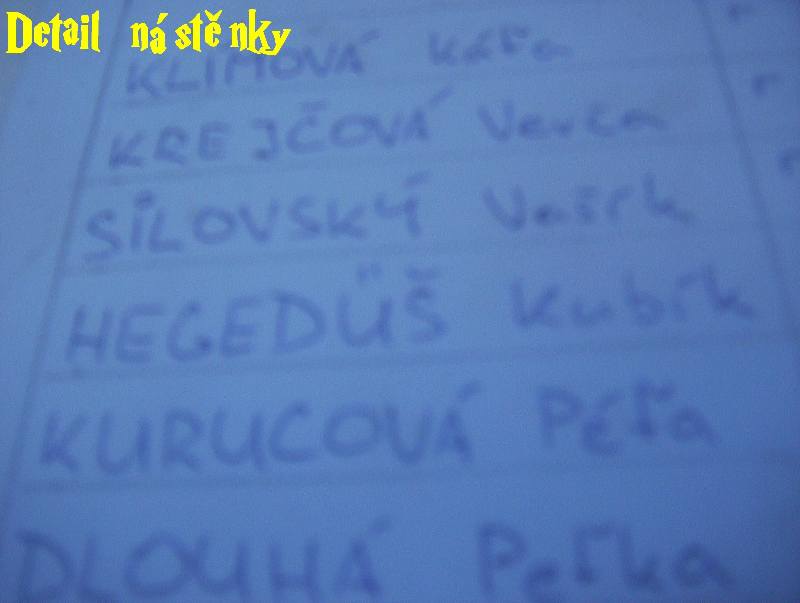 Detail nástěnky
KLÍMOVÁ Káťa
KREJČOVÁ Verča
SÍLOVSKÝ Vašík
HEGEDÜŠ Kubík
KURUCOVÁ Péťa
DLOUHÁ Peťka